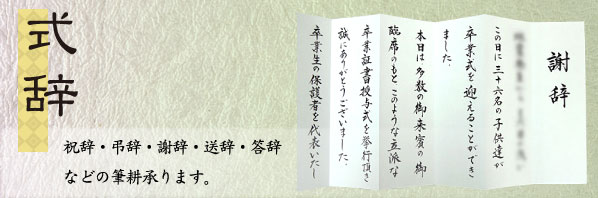 式辞
祝辞・弔辞・謝辞・送辞・答辞
などの筆耕承ります。
謝辞
この日に三十六名の子供達が
卒業式を迎えることができ
ました。
本日は多数の御来賓の御
臨席のもとこのような立派な
卒業証書授与式を挙行頂き
誠にありがとうございました。
卒業生の保護者を代表いたし